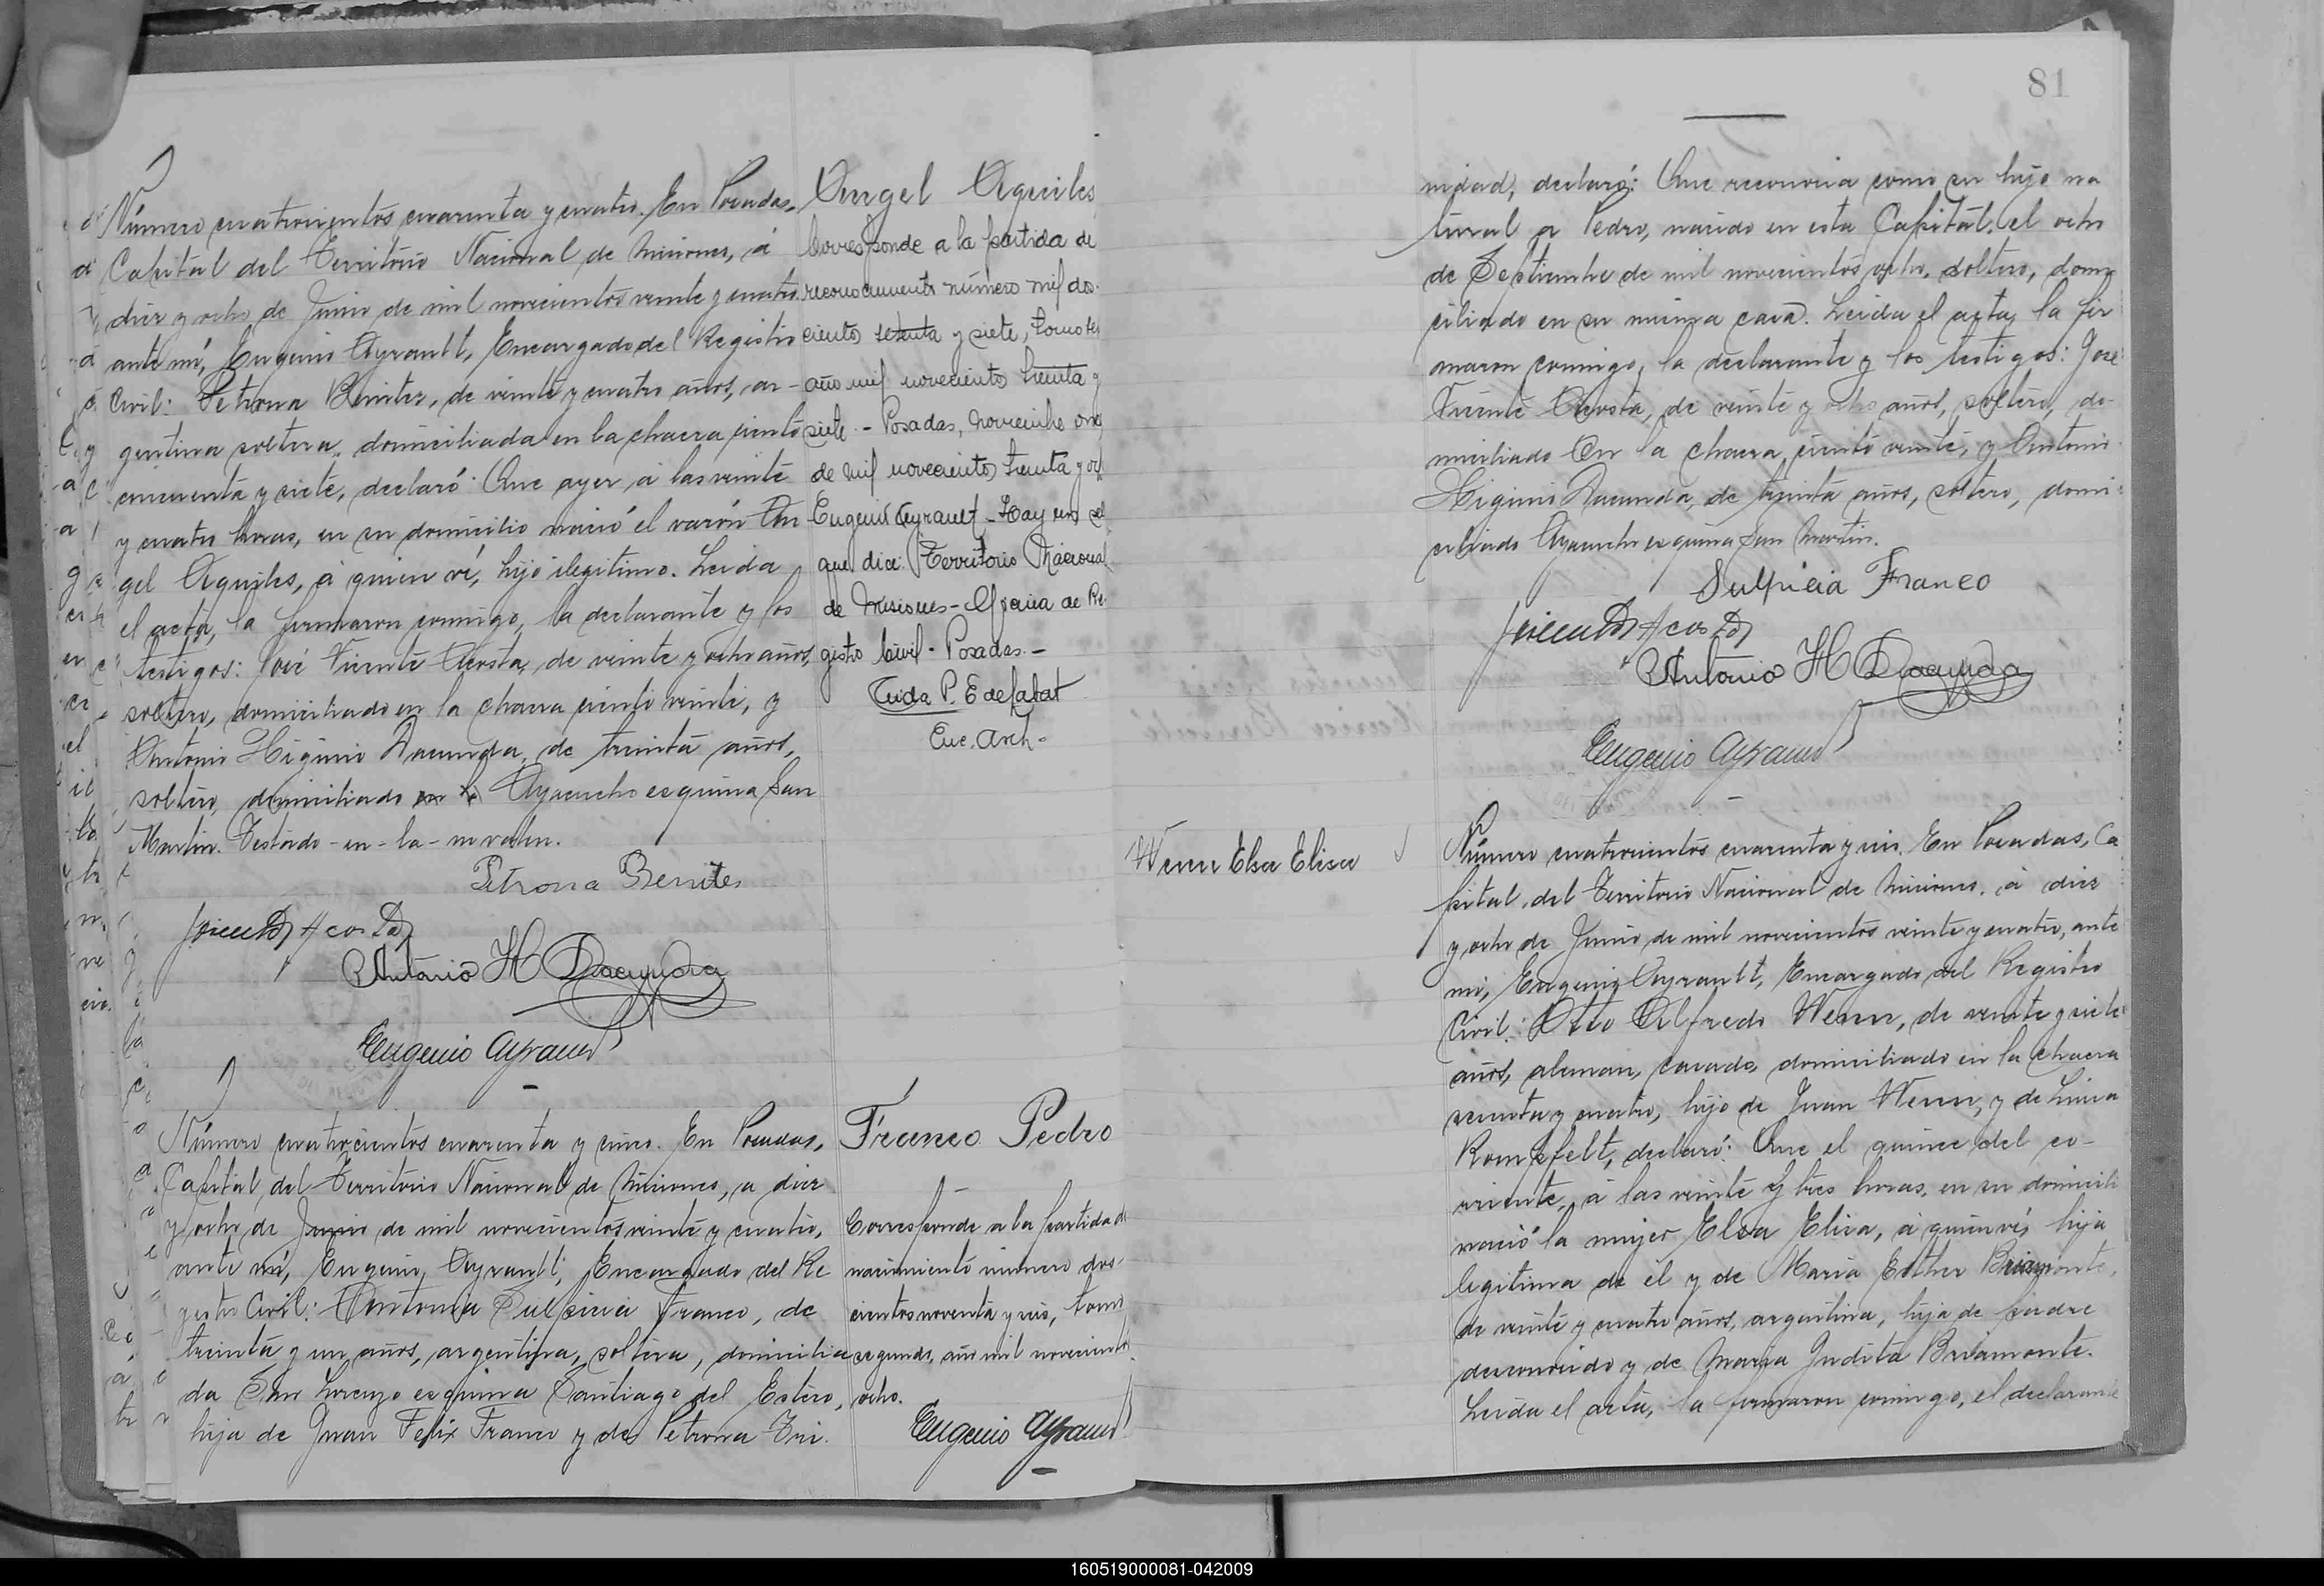 Número cuatrocientos cuarenta y cuatro. En Posadas,
Capital del Territorio Nacional de Misiones, á
diez y ocho de Junio de mil novecientos veinte y cuatro,
ante mí, Eugenio Ayrault, Encargado del Registro
Civil: Petrona Benitez, de veinte y cuatro años, ar-
gentina soltera, domiciliada en la chacra ciento
cincuenta y siete, declaró: Que ayer, á las veinte
y cuatro horas, en su domicilio nació el varón An
gel Aquiles, á quien ví, hijo ilegitimo. Leida
el acta, la firmaron conmigo, la declarante y los
testigos: José Vicente Acosta, de veinte y ocho años,
soltero, domiciliado en la chacra ciento veinte, y
Antonio Higinio Dacunda, de treinta años,
soltero, domiciliado en la Ayacucho esquina San
Martin. Testado - en - la - no valen.
Petrona Benites
Jvicente Acosta
Antonio H Dacunda
Eugenio Ayrault
Angel Aquiles
Corresponde a la partida de
reconocimiento número mil dos-
cientos setenta y siete, tomo
año mil novecientos treinta y
siete. - Posadas, Noviembre once
de mil novecientos treinta y
Eugenio Ayrault - Hay un
que dice: Territorio Nacional
de Misiones - Oficina de Re-
gistro Civil - Posadas. -
P. E de
Enc. Arch-
Número cuatrocientos cuarenta y cinco. En Posadas,
Capital del Territorio Nacional de Misiones, a diez
y ocho de Junio de mil novecientos veinte y cuatro,
ante mí, Eugenio Ayrault, Encargado del Re
gistro Civil: Antonia Sulpicia Franco, de
treinta y un años, argentina, soltera, domicilia
da San Lorenzo esquina Santiago del Estero,
hija de Juan Felix Franco y de Petrona Tri.
Franco Pedro
Corresponde a la partida de
nacimiento número dos-
cientos noventa y seis, tomo
segundo, año mil novecientos
ocho.
Eugenio Ayrault
81
nidad, declaró: Que reconocia como su hijo na
tural a Pedro, nacido en esta Capital, el ocho
de Septiembre de mil novecientos ocho, soltero, domi
ciliado en su misma casa. Leida el acta, la fir
maron conmigo, la declarante y los testigos: José
Vicente Acosta, de veinte y ocho años, soltero, do-
miciliado en la chacra ciento veinte, y Antonio
Higinio Dacunda, de treinta años, soltero, domi-
ciliado Ayacucho esquina San Martin.
Sulpicia Franco
Jvicente Acosta
Antonio H Dacunda
Eugenio Ayrault
Wenn Elsa Elisa
Número cuatrocientos cuarenta y seis. En Posadas, Ca
pital del Territorio Nacional de Misiones, á diez
y ocho de Junio de mil novecientos veinte y cuatro, ante
mí, Eugenio Ayrault, Encargado del Registro
Civil: Otto Alfredo Wenn, de veinte y siete
años, aleman, casado, domiciliado en la chacra
y cuatro, hijo de Juan Wenn, y de Lina
Romkefelt, declaró: Que el quince del co-
rriente, á las veinte y tres horas, en su domicili
nació la mujer Elsa Elisa, á quien ví, hija
legitima de él y de Maria Esther Briamonte,
de veinte y cuatro años, argentina, hija de padre
desconocido y de Maria Judita Briamonte.
Leida el acta, la firmaron conmigo, el declarante
160519000081-042009